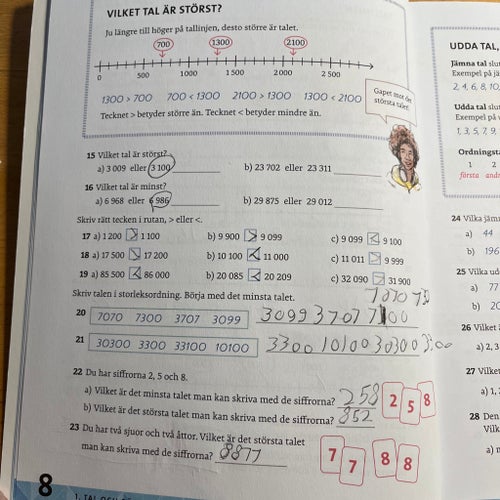 VILKET TAL ÄR STÖRST?
Ju längre till höger på tallinjen, desto större är talet.
700 1300 2100
0 500 1000 1 500 2 000 2 500
1300 > 700 700 < 1300 2100 > 1300 1300 < 2100
Tecknet > betyder större än. Tecknet < betyder mindre än.
Gapet mot det största talet.
15 Vilket tal är störst?
a) 3 009 eller 3 100 b) 23 702 eller 23 311
16 Vilket tal är minst?
a) 6 968 eller 6 986 b) 29 875 eller 29 012
Skriv rätt tecken i rutan, > eller <.
17 a) 1 200 > 1 100 b) 9 900 > 9 099 c) 9 099 < 9 100
18 a) 17 500 > 17 200 b) 10 100 < 11 000 c) 11 011 > 9 999
19 a) 85 500 < 86 000 b) 20 085 < 20 209 c) 32 090 > 31 900
Skriv talen i storleksordning. Börja med det minsta talet.
20 7070 7300 3707 3099 3099 3707
21 30300 3300 33100 10100 3300 10100 30300
22 Du har siffrorna 2, 5 och 8.
a) Vilket är det minsta talet man kan skriva med de siffrorna? 258
b) Vilket är det största talet man kan skriva med de siffrorna? 852
2 5 8
23 Du har två sjuor och två åttor. Vilket är det största talet
man kan skriva med de siffrorna? 8877
7 7 8 8
8
UDDA TAL,
Jämna tal
Exempel på
2, 4, 6, 8, 10,
Udda tal
Exempel på
1, 3, 5, 7, 9,
1 2
första
24 Vilka
a) 44
b) 196
25 Vilka
a) 77
b)
26 Vilket
a) 2, 3
27 Vilket
a) 1,
28 Den